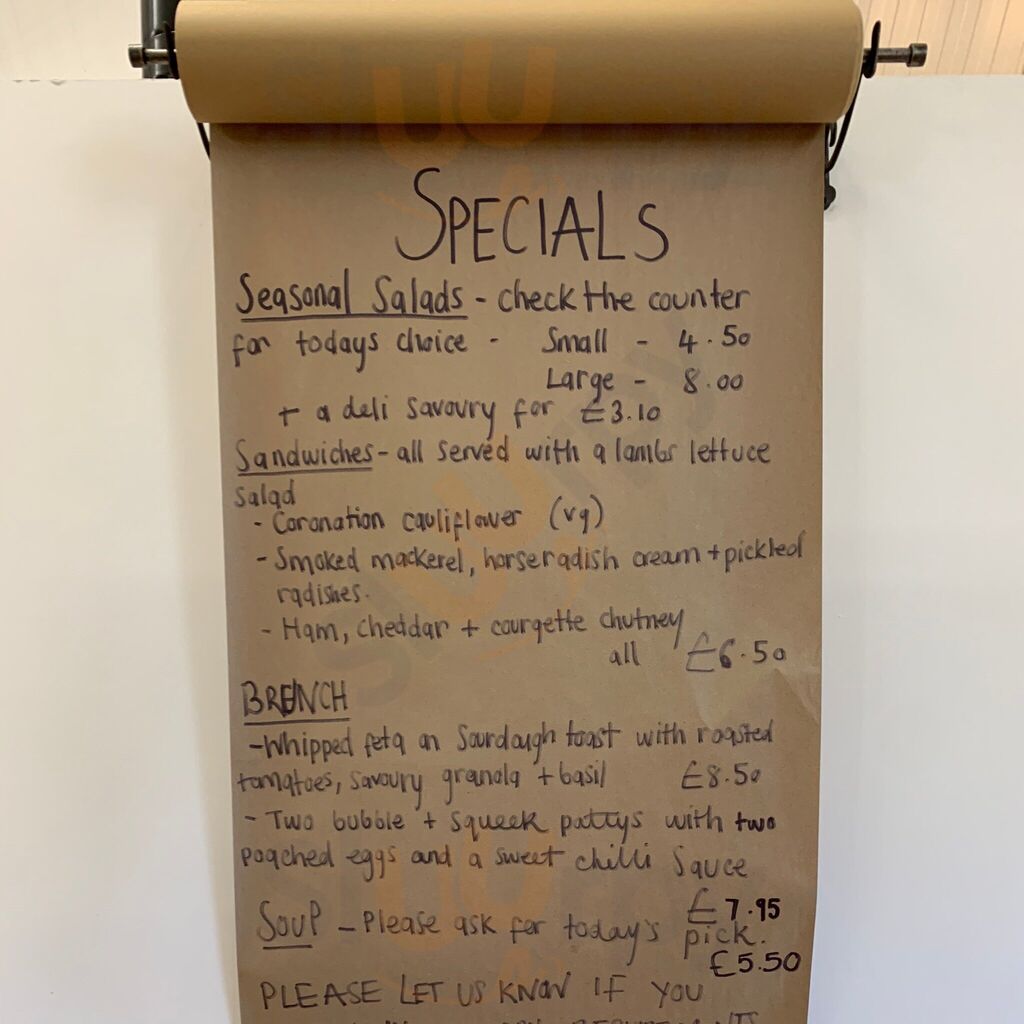 SPECIALS
Seasonal Salads - check the counter
for todays choice - Small - 4.50
Large - 8.00
+ a deli savoury for £3.10
Sandwiches - all served with a lambs lettuce
salad
- Coronation cauliflower (vg)
- Smoked mackerel, horseradish cream + pickled
radishes.
- Ham, cheddar + courgette chutney
all £6.50
BRUNCH
- Whipped feta on Sourdough toast with roasted
tomatoes, savoury granola + basil £8.50
- Two bubble + squeek pattys with two
poached eggs and a sweet chilli Sauce
£7.95
SOUP - Please ask for today's pick.
£5.50
PLEASE LET US KNOW IF YOU